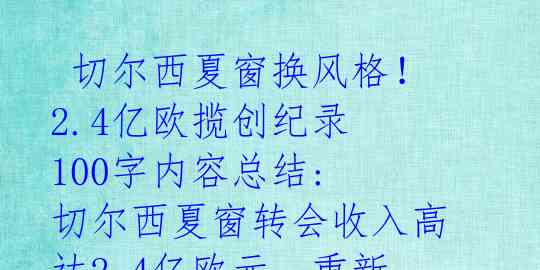 切尔西夏窗换风格！
2.4亿欧揽创纪录
100字内容总结:
切尔西夏窗转会收入高
达2.4亿欧元，重新